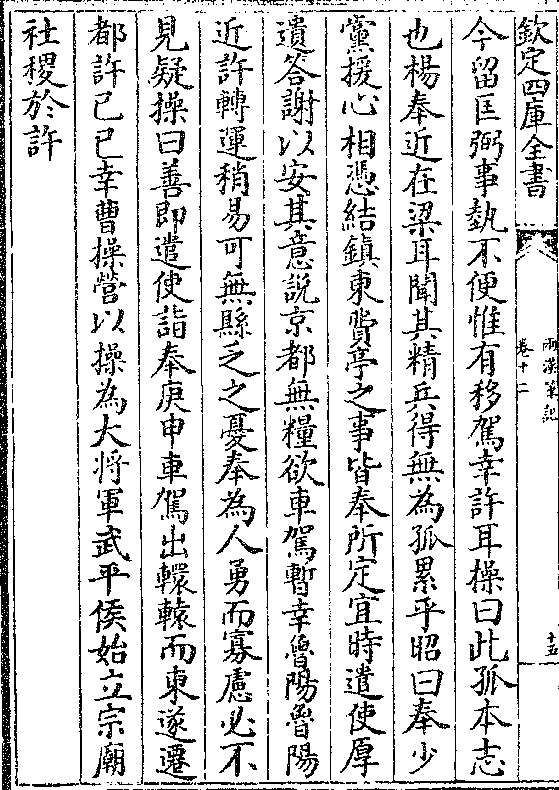 欽定四庫全書
兩漢筆記
卷十二
十五
今留匡弼事埶不便惟有移駕幸許耳操曰此孤本志
也楊奉近在梁耳聞其精兵得無為孤累乎昭曰奉少
黨援心相憑結鎮東費亭之事皆奉所定宜時遣使厚
遺答謝以安其意說京都無糧欲車駕暫幸魯陽魯陽
近許轉運稍易可無縣乏之憂奉為人勇而寡慮必不
見疑操曰善即遣使詣奉庚申車駕出轘轅而東遂遷
都許己巳幸曹操營以操為大將軍武平侯始立宗廟
社稷於許